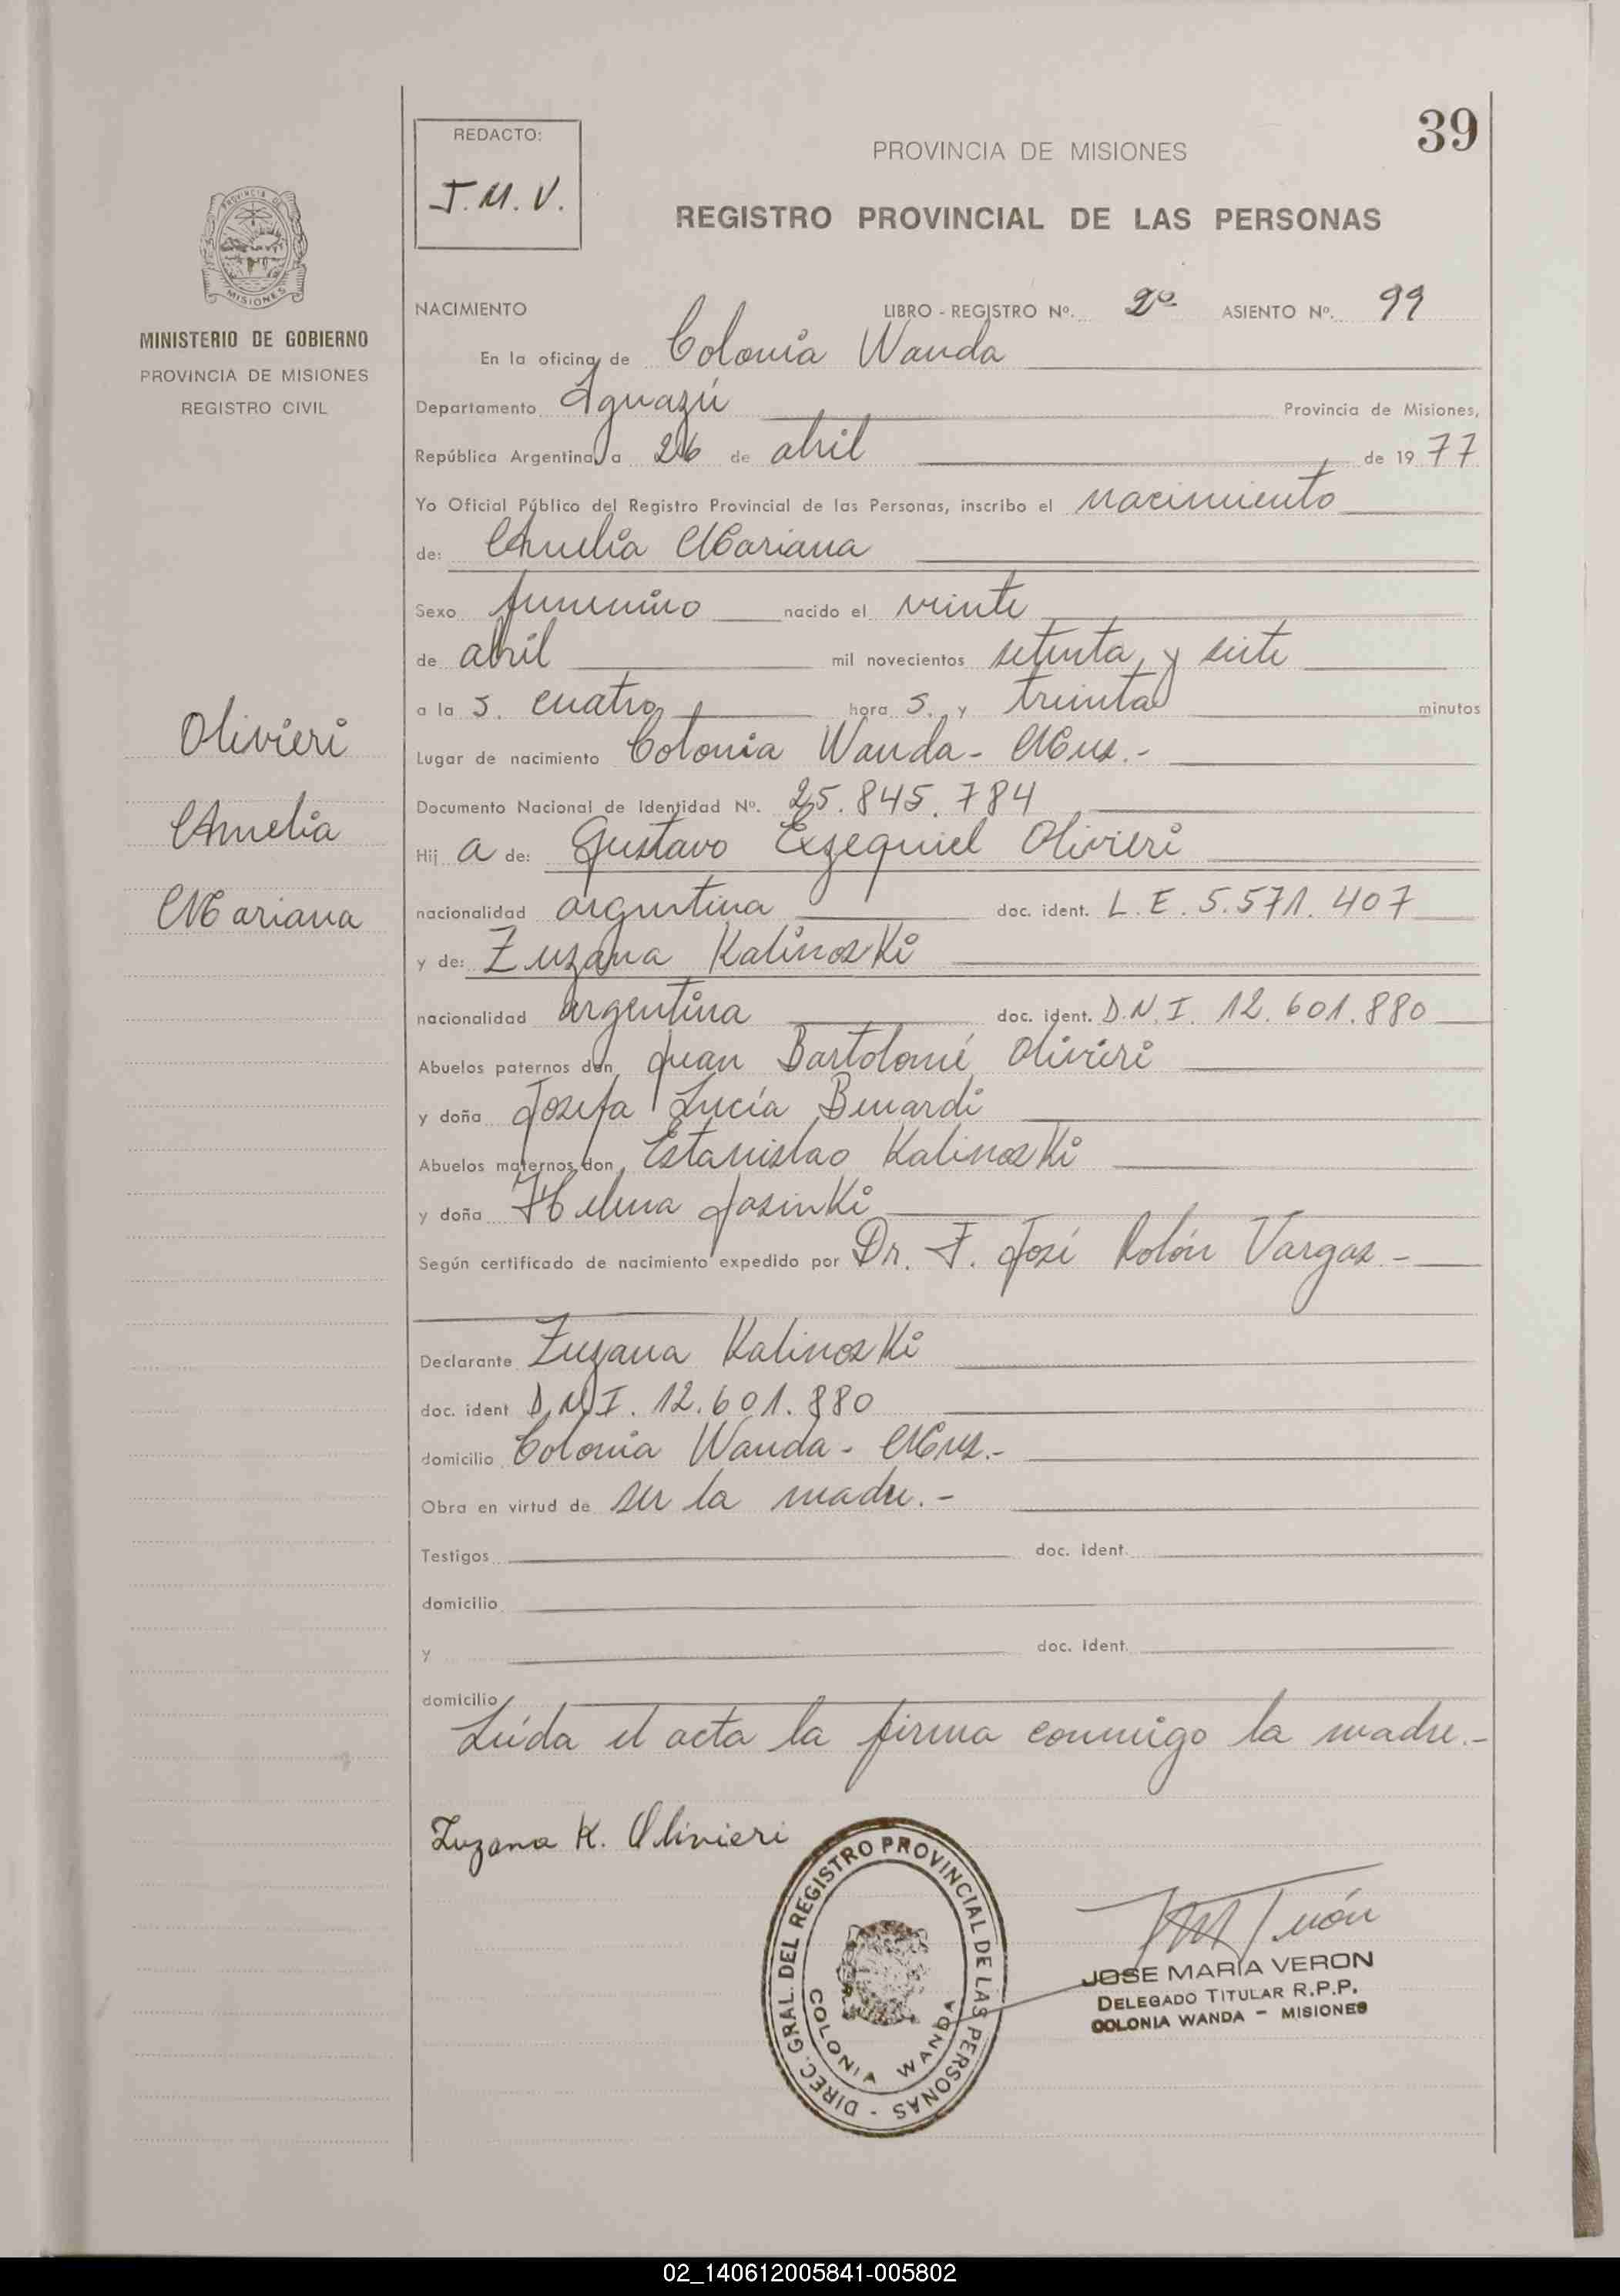 39
REDACTO:
J.M.V.
PROVINCIA DE MISIONES
REGISTRO PROVINCIAL DE LAS PERSONAS
PROVINCIA DE MISIONES
MINISTERIO DE GOBIERNO
PROVINCIA DE MISIONES
REGISTRO CIVIL
Olivieri
Amelia
Mariana
NACIMIENTO LIBRO - REGISTRO Nº. 2º ASIENTO Nº. 99
En la oficina de Colonia Wanda
Departamento Iguazú Provincia de Misiones,
República Argentina, a 26 de abril de 1977
Yo Oficial Público del Registro Provincial de las Personas, inscribo el nacimiento
de: Amelia Mariana
Sexo femenino nacido el veinte
de abril mil novecientos setenta y siete
a la s. cuatro hora s. y treinta minutos
Lugar de nacimiento Colonia Wanda - Mns.-
Documento Nacional de Identidad Nº. 25.845.784
Hij a de: Gustavo Exzequiel Olivieri
nacionalidad argentina doc. ident. L.E. 5.571.407
y de: Zuzana Kalinoski
nacionalidad argentina doc. ident. D.N.I. 12.601.880
Abuelos paternos don Juan Bartolomé Olivieri
y doña Josefa Lucía Benardi
Abuelos maternos don Estanislao Kalinoski
y doña Helena Jasinki
Según certificado de nacimiento expedido por Dr. F. José Rolón Vargas -
Declarante Zuzana Kalinoski
doc. ident D.N.I. 12.601.880
domicilio Colonia Wanda - Mns.-
Obra en virtud de ser la madre.-
Testigos doc. ident.
domicilio
y doc. ident.
domicilio
Leída el acta la firma conmigo la madre.-
Zuzana K. Olivieri
DIREC. GRAL. DEL REGISTRO PROVINCIAL DE LAS PERSONAS -
COLONIA WANDA
JOSE MARIA VERON
DELEGADO TITULAR R.P.P.
COLONIA WANDA - MISIONES
02_140612005841-005802